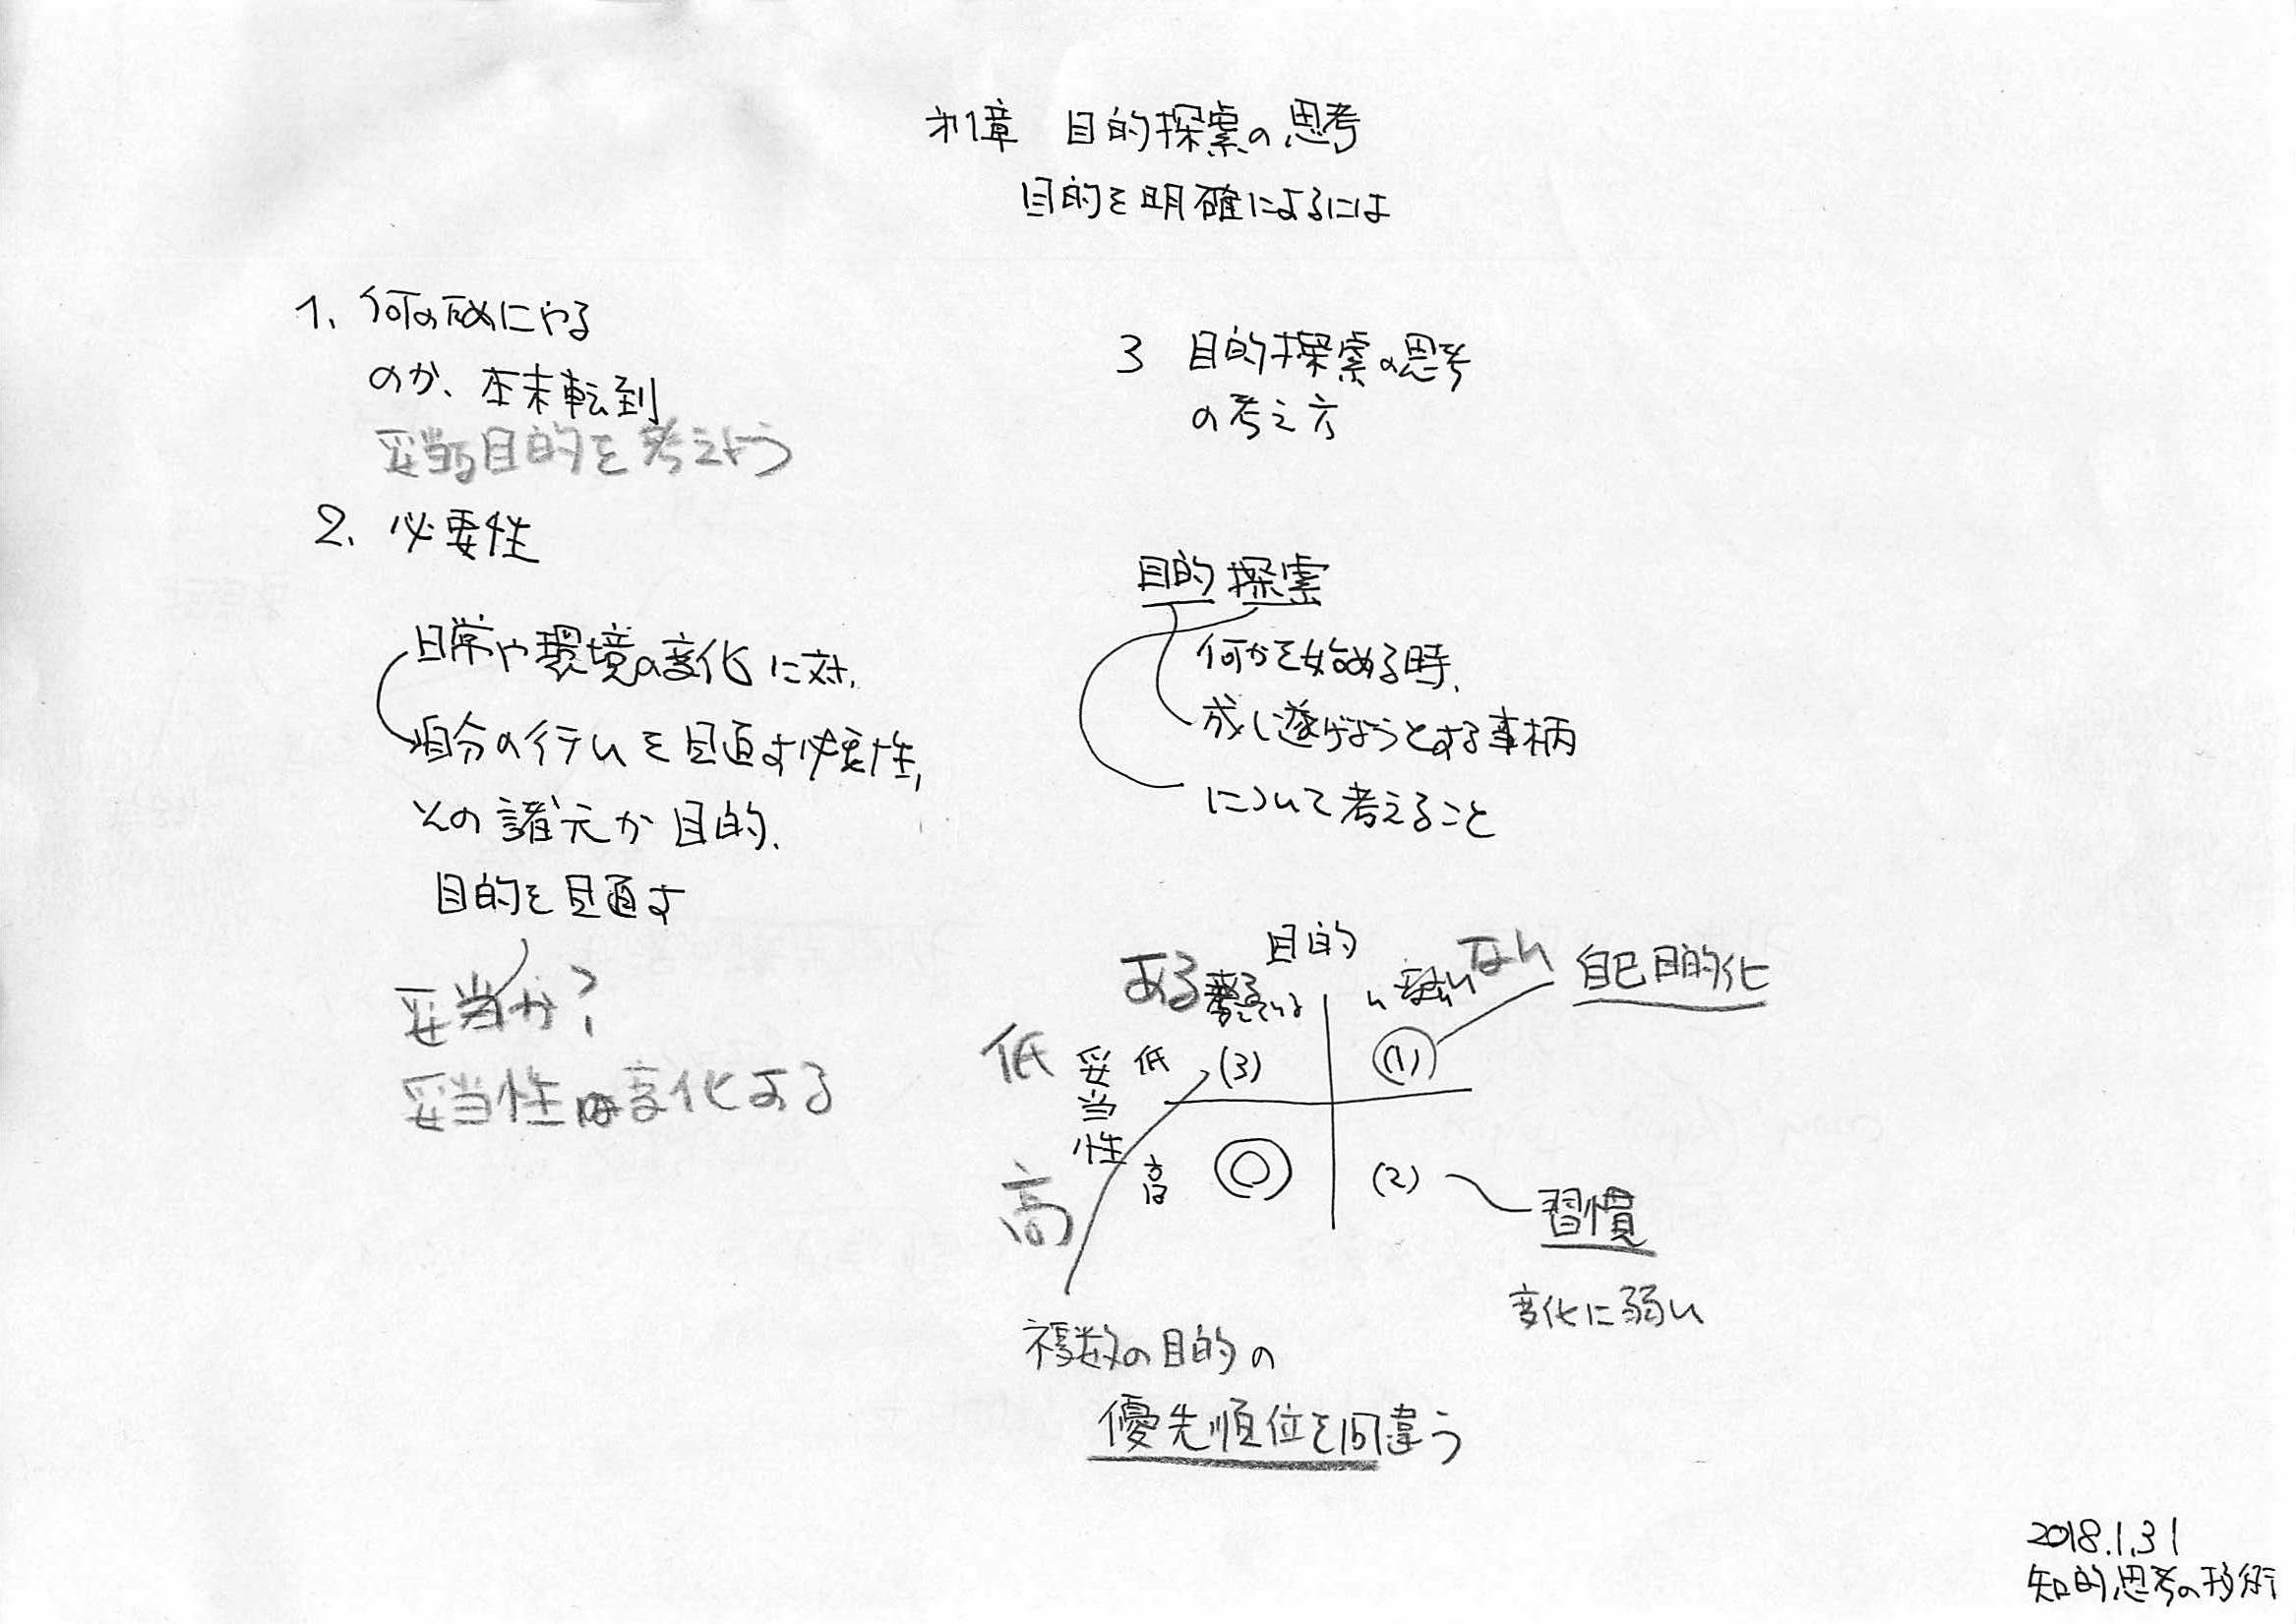 第1章 目的探索の思考
目的を明確にするには
1、何の為にやる
のか、本末転到
妥当な目的を考えよう
2、必要性
日常や環境の変化に対、
自分のイテムを見直す必要性、
その諸元が目的、
目的を見直す
妥当か？
妥当性は変化する
3 目的探索の思考
の考え方
目的探索
何かを始める時、
成し遂げようとする事柄
について考えること
目的
ある
ない
自己目的化
低
妥当性
低
(3)
(1)
高
高
(2)
習慣
変化に弱い
複数の目的の
優先順位を間違う
2018.1.31
知的思考の技術